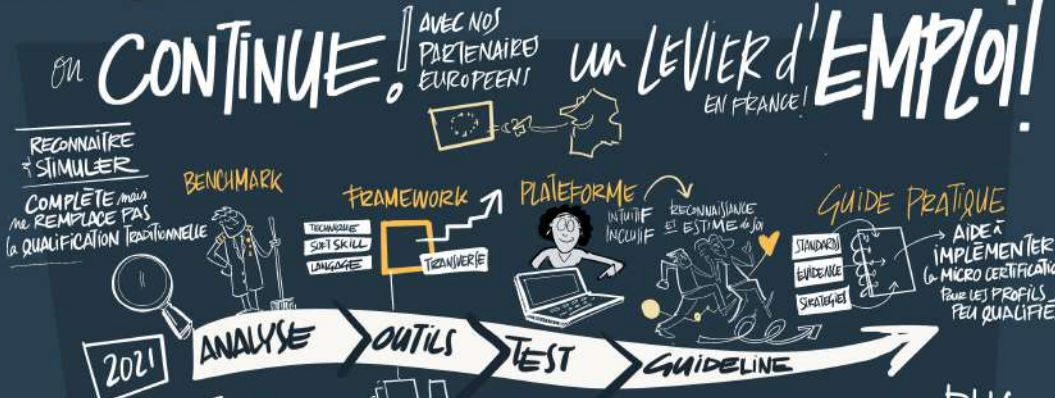 on CONTINUE!
AVEC NOS
PARTENAIRES
EUROPEENS
un LEVIER d'EMPLOI!
EN FRANCE!
RECONNAITRE
& STIMULER
COMPLÈTE mais
ne REMPLACE PAS
la QUALIFICATION TRADITIONNELLE
BENCHMARK
FRAMEWORK
TECHNIQUE
SOFT SKILL
LANGAGE
TRANSVERSE
PLATEFORME
INTUITIF
INCLUSIF
RECONNAISSANCE
ET ESTIME de Soi
GUIDE PRATIQUE
STANDARDS
EVIDENCE
STRATEGIES
AIDE à
IMPLÉMENTER
la MICRO CERTIFICATIO
POUR LES PROFILS
PEU QUALIFIE
2021
ANALYSE
OUTILS
TEST
GUIDELINE